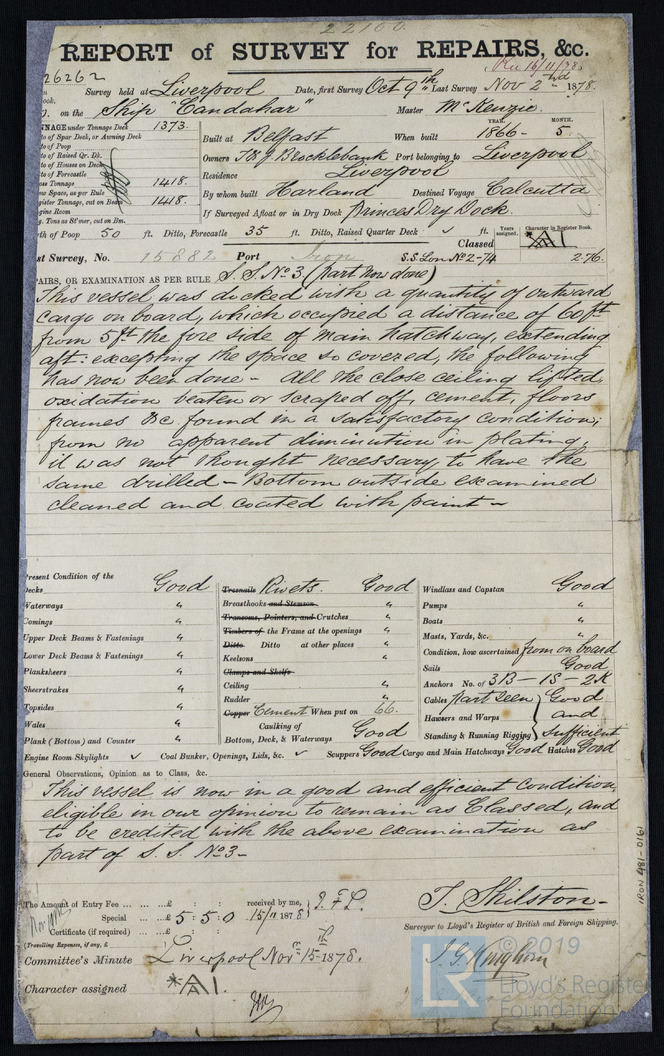 22100.
REPORT of SURVEY for REPAIRS, &c.
26262
Survey held at Liverpool Date, first Survey Oct 9th Last Survey Nov 2nd 1878.
on the Ship "Candahar" Master McKenzie
NNAGE under Tonnage Deck 1373.
to of Spar Deck, or Awning Deck
to of Poop
to of Raised Qr. Dk.
to of Houses on Deck
to of Forecastle
oss Tonnage 1418.
ew Spaces, as per Rule
gister Tonnage, cut on Beam 1418.
ngine Room
g. Tons as St'mer, cut on Bm.
YEAR. MONTH.
Built at Belfast When built 1866 - 5
Owners T & J Brocklebank Port belonging to Liverpool
Residence Liverpool
By whom built Harland Destined Voyage Calcutta
If Surveyed Afloat or in Dry Dock Princes Dry Dock.
th of Poop 50 ft. Ditto, Forecastle 35 ft. Ditto, Raised Quarter Deck ft.
Years assigned. Character in Register Book.
Classed A1
st Survey, No. 15882 Port Iron S.S. Lon No 2-74 2-76.
AIRS, OR EXAMINATION AS PER RULE S.S. No 3 (part now done)
This vessel was docked with a quantity of outward
cargo on board, which occupied a distance of 60 ft
from 5 ft the fore side of main hatchway, extending
aft: excepting the space so covered, the following
has now been done - All the close ceiling lifted,
oxidation beaten or scraped off, cement, floors
frames &c found in a satisfactory condition;
from no apparent diminution in plating,
it was not thought necessary to have the
same drilled - Bottom outside examined
cleaned and coated with paint -
Present Condition of the
Decks Good
Waterways "
Comings "
Upper Deck Beams & Fastenings "
Lower Deck Beams & Fastenings "
Planksheers "
Sheerstrakes "
Topsides "
Wales "
Plank (Bottom) and Counter "
Engine Room Skylights ✓ Coal Bunker, Openings, Lids, &c. ✓
Treenails Rivets. Good
Breasthooks and Stemson "
Transoms, Pointers, and Crutches "
Timbers of the Frame at the openings "
Ditto Ditto at other places "
Keelsons "
Clamps and Shelfs
Ceiling "
Rudder "
Copper Cement When put on 66.
Caulking of
Bottom, Deck, & Waterways Good
Scuppers Good Cargo and Main Hatchways Good Hatches Good
Windlass and Capstan Good
Pumps "
Boats "
Masts, Yards, &c. "
Condition, how ascertained from on board
Sails Good
Anchors No. of 3B - 1S - 2K
Cables part seen Good
Hawsers and Warps and
Standing & Running Rigging sufficient
General Observations, Opinion as to Class, &c.
This vessel is now in a good and efficient condition,
eligible in our opinion to remain as Classed, and
to be credited with the above examination as
part of S. S. No 3 -
The Amount of Entry Fee ... ... ...£ : : received by me,
Special ... ...£ 5 : 5 : 0 15/11 1878
Certificate (if required) ...£ : :
(Travelling Expenses, if any, £
T. Shilston -
Surveyor to Lloyd's Register of British and Foreign Shipping.
Committee's Minute Liverpool Nov 15th 1878.
Character assigned *A1.
IRON 481-0161
© 2019
LR
Lloyd's Register
Foundation